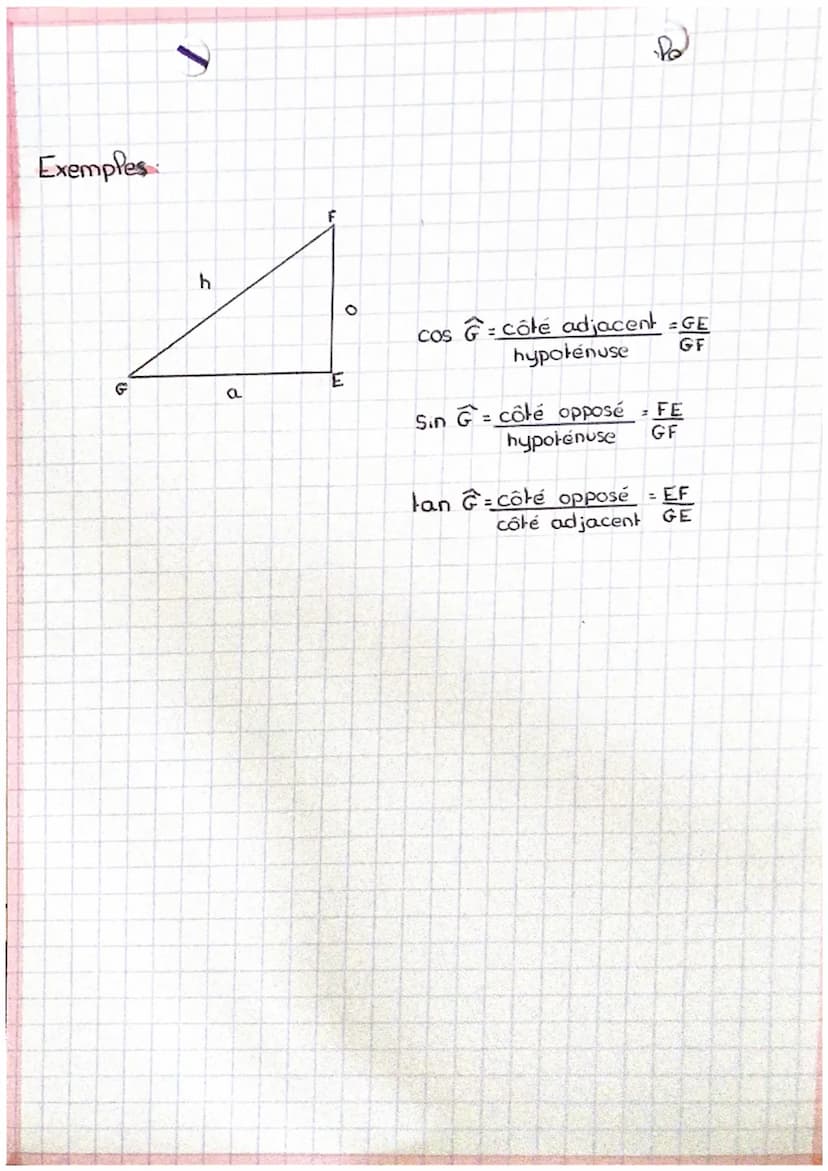 Exemples.
F
h
o
G
a
E
cos Ĝ = côté adjacent / hypoténuse = GE / GF
Sin Ĝ = côté opposé / hypoténuse = FE / GF
tan Ĝ = côté opposé / côté adjacent = EF / GE